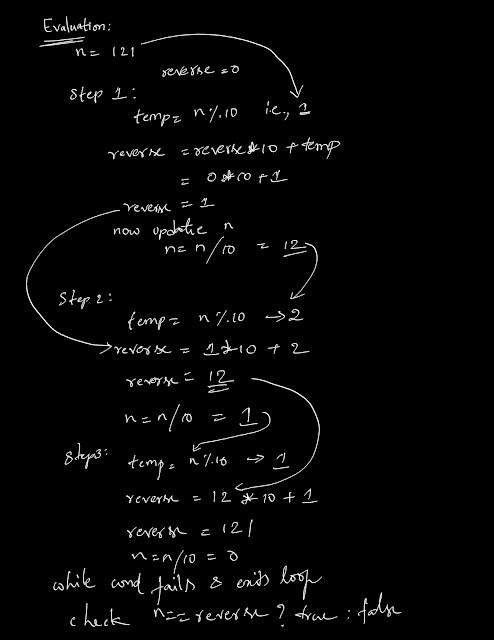 Evaluation:
n = 121
reverse = 0
Step 1:
temp = n%10 i.e., 1
reverse = reverse*10 + temp
= 0*10+1
reverse = 1
now update n
n = n/10 = 12
Step 2:
temp = n%10 → 2
reverse = 1*10 + 2
reverse = 12
n = n/10 = 1
Step3:
temp = n%10 → 1
reverse = 12 * 10 + 1
reverse = 121
n = n/10 = 0
while cond fails & exits loop
check n == reverse ? true : false